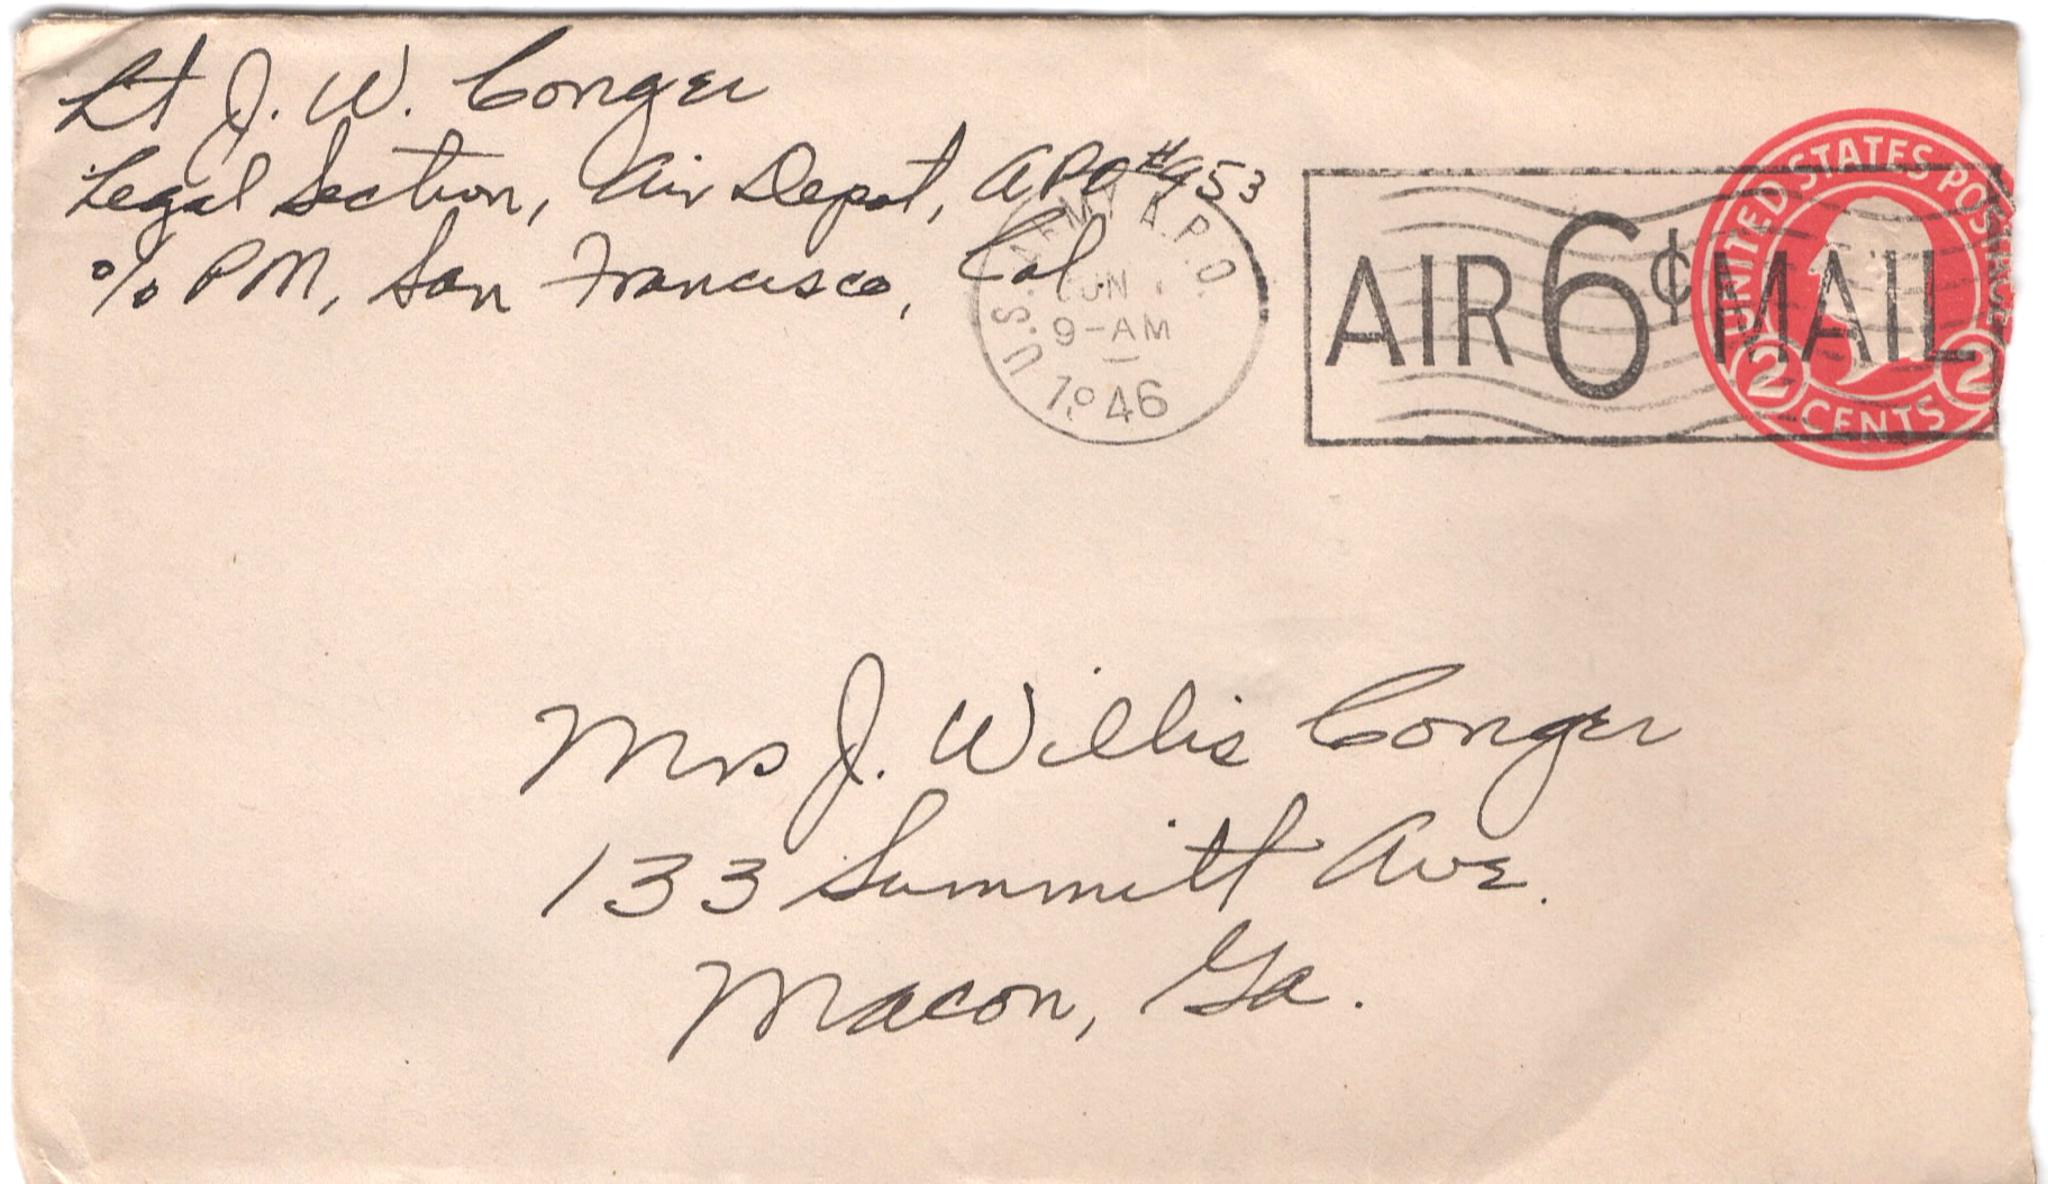 Lt J. W. Conger
Legal Section, Air Depot, APO #953
% PM, San Francisco, Cal.
U.S. ARMY A.P.O.
JUN
9-AM
1946
AIR 6¢ MAIL
UNITED STATES POSTAGE
2 2
CENTS
Mrs J. Willis Conger
133 Summitt Ave.
Macon, Ga.